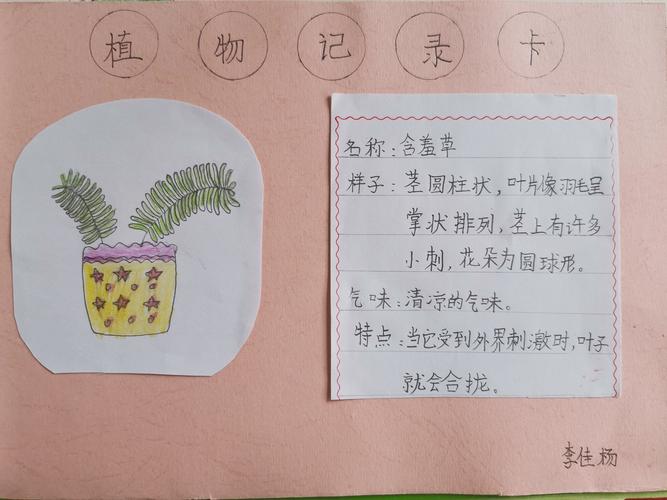 植物记录卡
名称：含羞草
样子：茎圆柱状，叶片像羽毛呈
掌状排列，茎上有许多
小刺，花朵为圆球形。
气味：清凉的气味。
特点：当它受到外界刺激时，叶子
就会合拢。
李佳杨